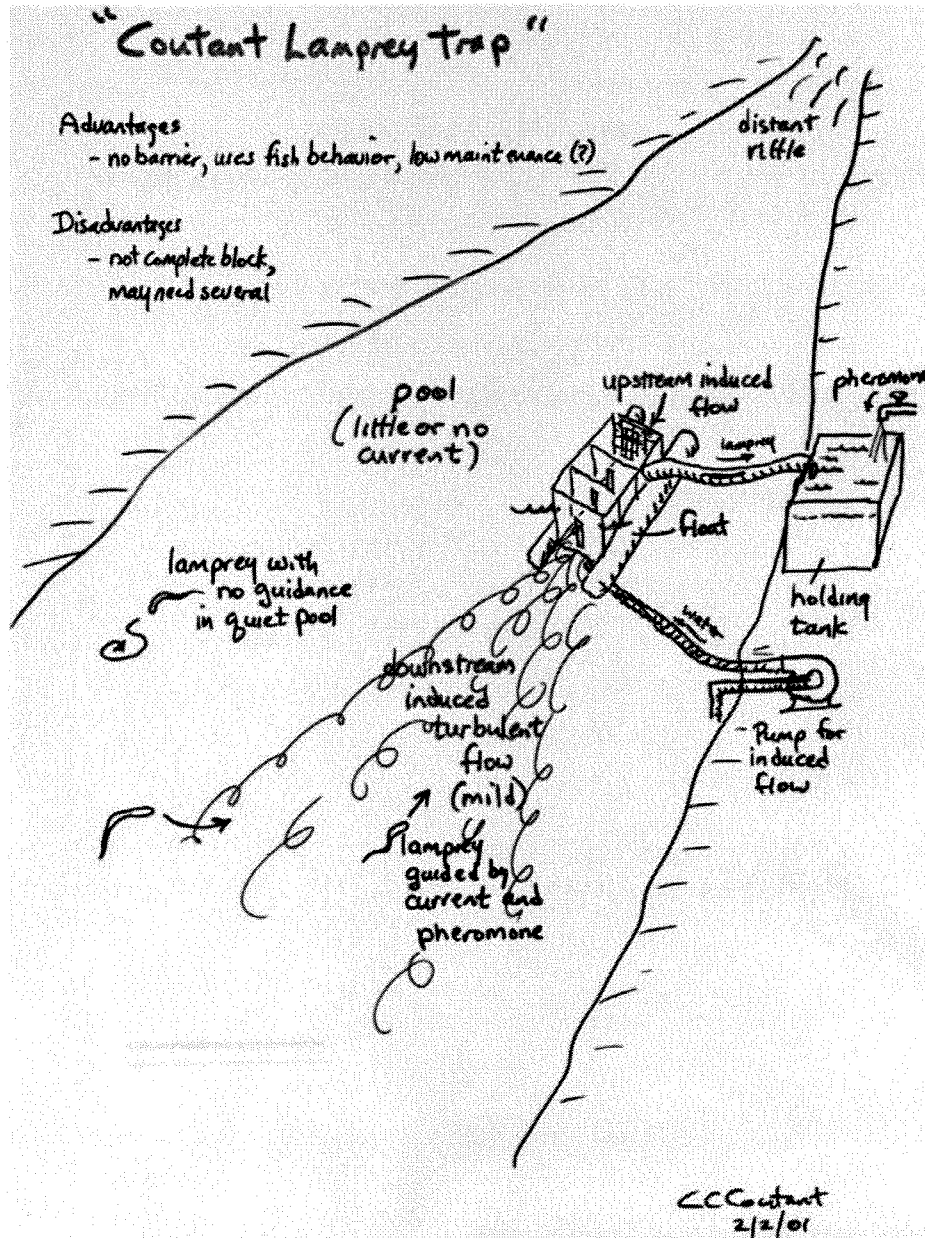 "Coutant Lamprey Trap"
Advantages
- no barrier, uses fish behavior, low maintenance (?)
Disadvantages
- not complete block,
may need several
distant
riffle
pool
(little or no
current)
upstream induced
flow
pheromone
lamprey
float
holding
tank
lamprey with
no guidance
in quiet pool
water
downstream
induced
turbulent
flow
(mild)
Pump for
induced
flow
lamprey
guided by
current and
pheromone
CCCoutant
2/2/01